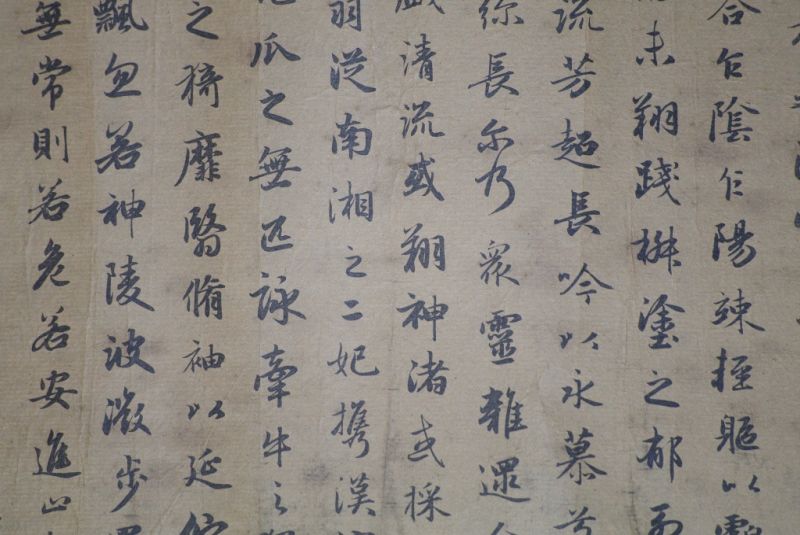 合乍陰乍陽竦輕軀以
未翔踐椒塗之郁
流芳超長吟以永慕兮
弥長尔乃衆靈雜遝
戲清流或翔神渚或採
羽從南湘之二妃攜漢
瓜之無匹詠牽牛之
之猗靡翳脩袖以延佇
飄忽若神陵波微步
無常則若危若安進止